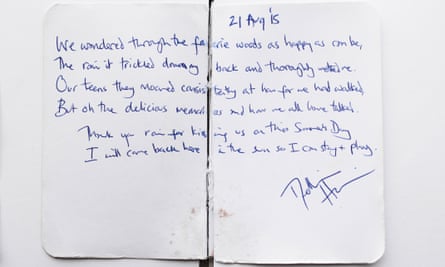 21 Aug 15
We wandered through the faerie woods as happy as can be,
The rain it trickled down my back and thoroughly me.
Our teens they moaned consistently at how far we had walked
But oh the delicious memories and how we all have talked.
Thank you rain for kissing us on this Summers Day
I will come back here in the sun so I can stay + play.